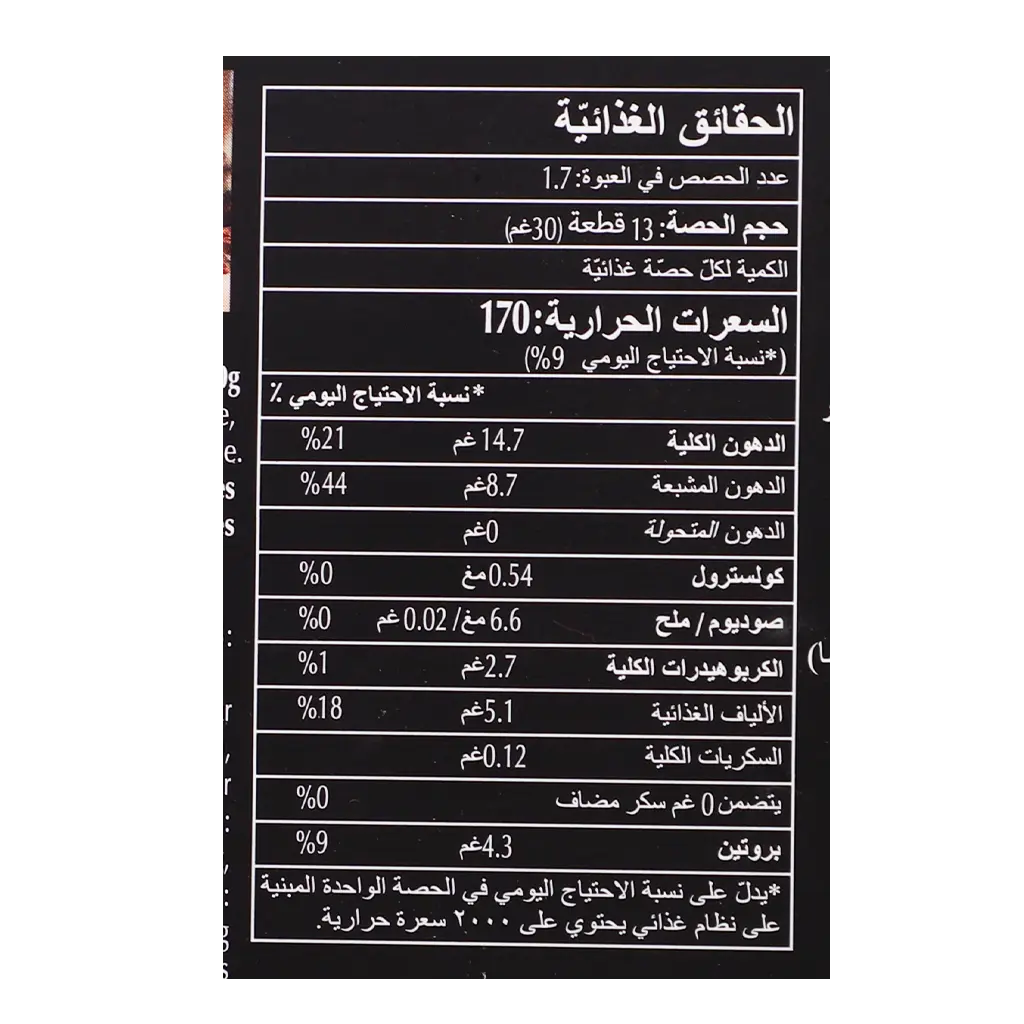 الحقائق الغذائيّة
عدد الحصص في العبوة: 1.7
حجم الحصة: 13 قطعة (30غم)
الكمية لكلّ حصّة غذائيّة
السعرات الحرارية: 170
(*نسبة الاحتياج اليومي 9%)
*نسبة الاحتياج اليومي ٪
الدهون الكلية 14.7 غم %21
الدهون المشبعة 8.7غم %44
الدهون المتحولة 0غم
كولسترول 0.54مغ %0
صوديوم / ملح 6.6 مغ/ 0.02 غم %0
الكربوهيدرات الكلية 2.7غم %1
الألياف الغذائية 5.1غم %18
السكريات الكلية 0.12غم
يتضمن 0 غم سكر مضاف %0
بروتين 4.3غم %9
*يدلّ على نسبة الاحتياج اليومي في الحصة الواحدة المبنية
على نظام غذائي يحتوي على ٢٠٠٠ سعرة حرارية.